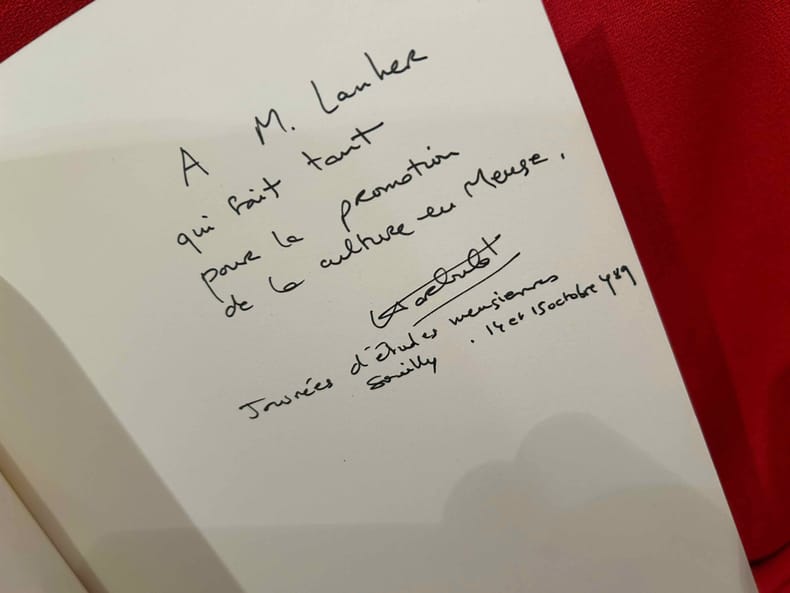 A M. Lanher
qui fait tant
pour la promotion
de la culture en Meuse.
Journées d'études meusiennes
Souilly . 14 et 15 octobre 1989